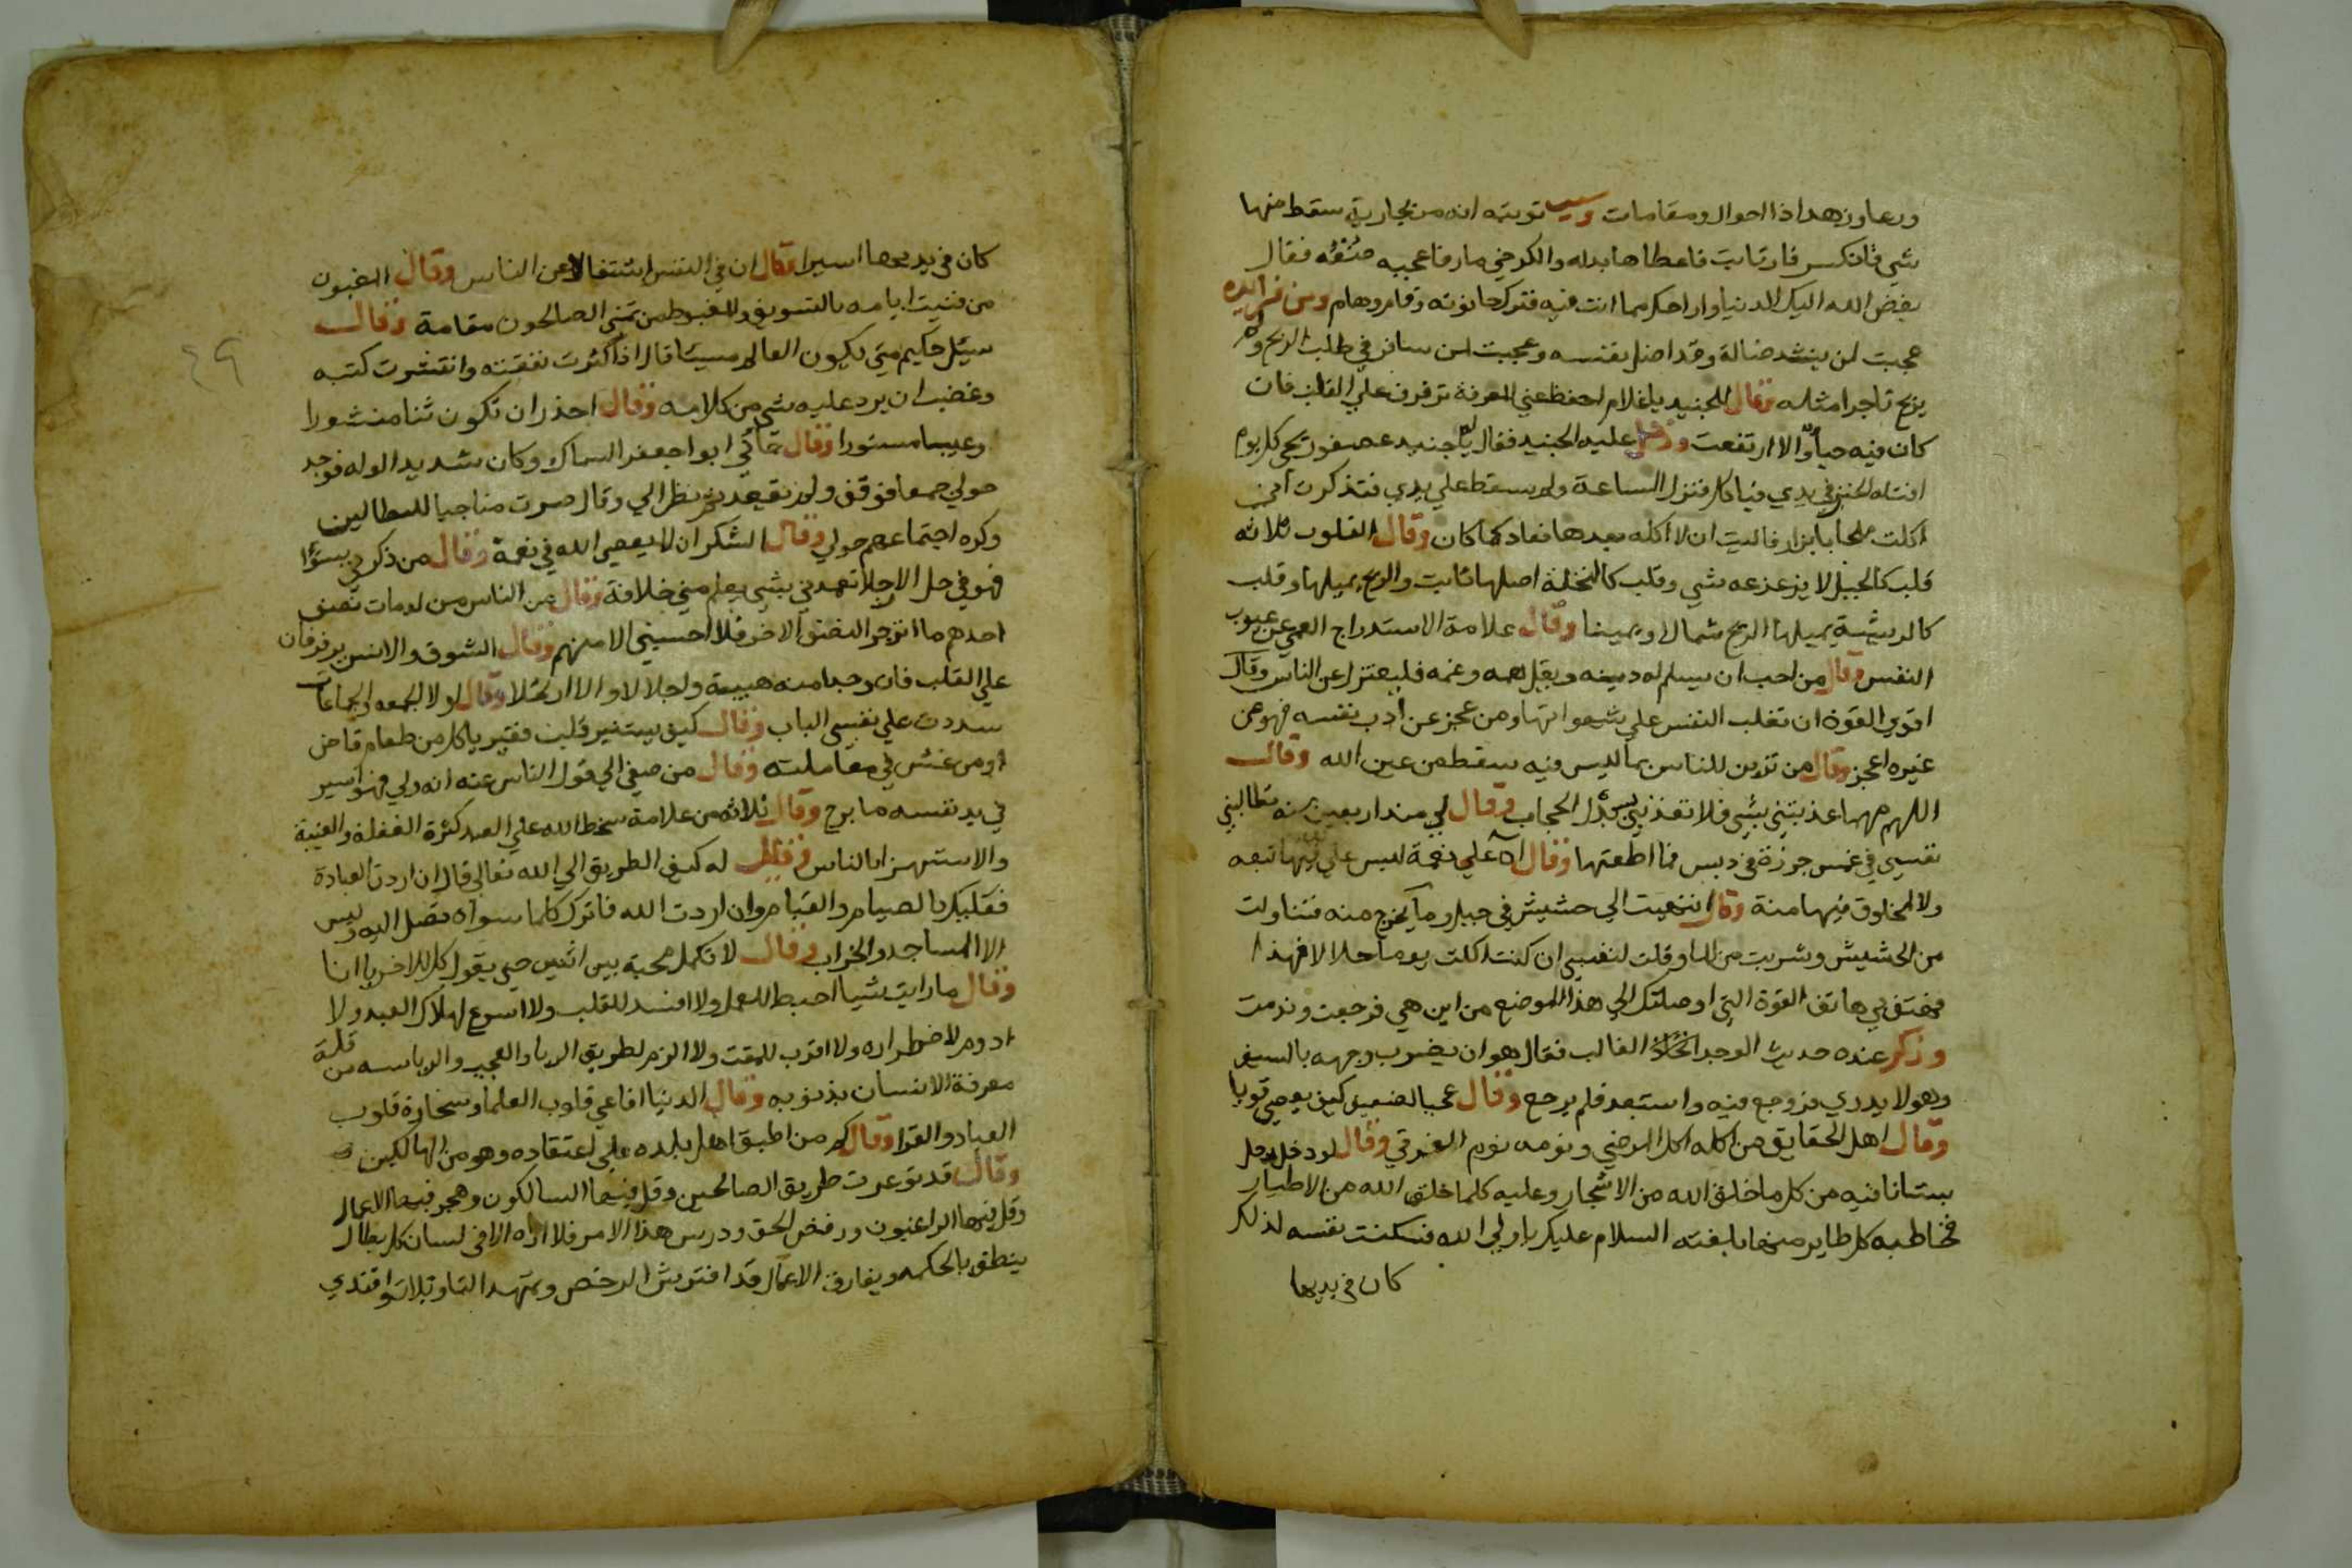 وسبب توبته انه مر بجارية سقط منها
شي فانكسر فارتابت فاعطاها بدله والكرخي مار فاعجبه فقال
بغض الله اليك الدنيا واراحك مما انت فيه فترك حانوته وقام وهام ومن فرايده
عجبت لمن ينشد ضالة وقد اضل نفسه وعجبت لمن سافر في طلب الربح ولم
يربح تاجرا مثله وقال للجنيد يا غلام احفظ عني المعرفة ترفرف علي القلب فان
كان فيه حياء والا ارتفعت ودخل عليه الجنيد فقال يا جنيد عصفور يجي كل يوم
افتله الخبز في يدي فياكل فنزل الساعة ولم يسقط علي يدي فتذكرت اني
اكلت ملحا بابزار فاليت ان لا اكله بعدها فعاد كما كان وقال القلوب ثلاثه
قلب كالجبل لا يزعزعه شي وقلب كالنخلة اصلها ثابت والريح يميلها وقلب
كالريشة يميلها الريح شمالا ويمينا وقال علامة الاستدراج العمي عن عيوب
النفس وقال من احب ان يسلم له دينه ويقل همه وغمه فليعتزل عن الناس وقال
اقوي القوة ان تغلب النفس علي شهواتها ومن عجز عن ادب نفسه فهو عن
غيره اعجز وقال من تزين للناس بما ليس فيه سقط من عين الله وقال
اللهم مهما عذبتني بشي فلا تعذبني بذل الحجاب وقال لي منذ اربعين سنه تطالبني
نفسي في غمس جوزة في دبس فما اطعتها وقال اه علي نعمة ليس علي فيها تبعه
ولا لمخلوق فيها منة وقال انتهيت الي حشيش في جبل وما يخرج منه فتناولت
من الحشيش وشربت من الما وقلت لنفسي ان كنت اكلت يوما حلالا فهذا
فهتف بي هاتف القوة التي اوصلتك الي هذا الموضع من اين هي فرجعت وندمت
وذكر عنده حديث الوجد الحاد الغالب فقال هو ان يضرب وجهه بالسيف
وهو لا يدري فروجع فيه واستبعد فلم يرجع وقال عجبا لضعيف كيف يعصي قويا
وقال اهل الحقايق من اكله اكل المرضي ونومه نوم الغرقي وقال لو دخل رجل
بستانا فيه من كل ما خلق الله من الاشجار وعليه كلما خلق الله من الاطيار
فخاطبه كل طاير منها بلغته السلام عليك يا ولي الله فسكنت نفسه لذلك
كان في يديها
كان في يديها اسيرا وقال ان في النفس اشتغالا عن الناس وقال المغبون
من فنيت ايامه بالتسويف والمغبوط من تمني الصالحون مقامة وقال
سيل حكيم متي يكون العالم مسيئا قال اذا كثرت نفقته وانتشرت كتبه
وغضب ان يرد عليه شي من كلامه وقال احذر ان تكون ثنا منشورا
وعيبا مستورا وقال جاني ابو اجعفر السماك وكان شديد الوله فوجد
حولي جمعا فوقف ولم يقعد ثم نظر الي وقال صرت مناخا للبطالين
وكره اجتماعهم حولي وقال الشكر ان لا يعصي الله في نعمة وقال من ذكرني بسوء
فهو في حل الا رجلا تعمدني بشي يعلم مني خلافة وقال من الناس من لو مات نصف
احدهم ما انزجر النصف الاخر فلا احسبني الا منهم وقال الشوق والانس يرفرفان
علي القلب فان وجدا منه هيبة واجلالا والا ارتحلا وقال لولا الجمعه والجماعات
سددت علي نفسي الباب وقال كيف يستنير قلب فقير ياكل من طعام قاض
او من غش في معاملته وقال من صغي الي قول الناس عنه انه ولي فهو اسير
في يد نفسه ما برح وقال ثلاثه من علامة سخط الله علي العبد كثرة الغفلة والغيبة
والاستهزا بالناس وقيل له كيف الطريق الي الله تعالي قال ان اردت العبادة
فعليك بالصيام والقيام وان اردت الله فاترك كلما سواه تصل اليه وليس
الا المساجد والخراب وقال لا تكمل محبة بين اثنين حتي يقول كل للاخر يا انا
وقال ما رايت شيا احبط للعمل ولا افسد للقلب ولا اسرع لهلاك العبد ولا
ادوم لاضطراره ولا اقرب للمقت ولا الزم لطريق الريا والعجب والرياسه من قلة
معرفة الانسان بذنوبه وقال الدنيا افاعي قلوب العلما وسحارة قلوب
العباد والقرا وقال كم من اطبق اهل بلده علي اعتقاده وهو من الهالكين
وقال قد توعرت طريق الصالحين وقل فيها السالكون وهجر فيها الاعمال
وقل فيها الراغبون ورفض الحق ودرس هذا الامر فلا اراه الا في لسان كل بطال
ينطق بالحكمه ويفارق الاعمال قد افترش الرخص وتمهد التاويلات واقتدي